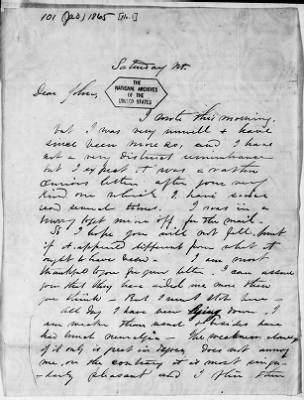 101 (Jad) 1865 [No.1]
Saturday
THE
NATIONAL ARCHIVES
OF THE
UNITED STATES
Dear John,
I wrote this morning.
but I was very unwell & have
since been more so, and I have
not a very distinct remembrance
but I expect it was a rather
curious letter after your very
kind one which I have since
read several times. I was in a
hurry to get mine off for the mail.
So I hope you will not but
if it appeared different from what it
ought to have been - I am most
thankful to you for your letter. I can assure
you that they have aided me more than
you think - But I must stop here -
All day I have been lying down. I
am weaker than usual & besides have
had much neuralgia - The weakness
if it only is does not annoy
me, on the contrary it is most
pleasant and I often then